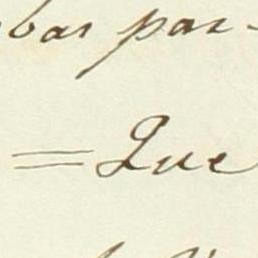 bas par-
= Que